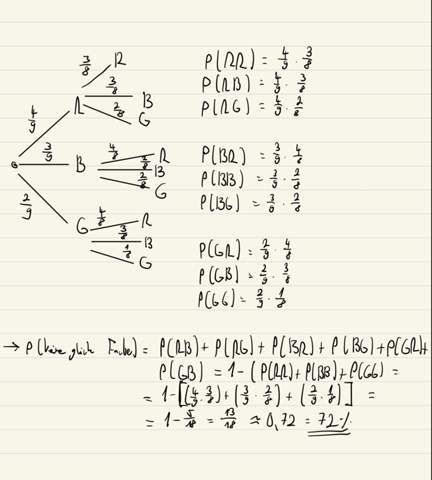 3/8 R
R 3/8 B
4/9 2/8 G
3/9 B 4/8 R
2/8 B
2/8 G
2/9 G 4/8 R
3/8 B
1/8 G
P(RR) = 4/9 · 3/8
P(RB) = 4/9 · 3/8
P(RG) = 4/9 · 2/8
P(BR) = 3/9 · 4/8
P(BB) = 3/9 · 2/8
P(BG) = 3/9 · 2/8
P(GR) = 2/9 · 4/8
P(GB) = 2/9 · 3/8
P(GG) = 2/9 · 1/8
→ P(keine gleich Farbe) = P(RB) + P(RG) + P(BR) + P(BG) + P(GR) +
P(GB) = 1 - (P(RR) + P(BB) + P(GG) =
= 1 - [(4/9 · 3/8) + (3/9 · 2/8) + (2/9 · 1/8)] =
= 1 - 5/18 = 13/18 ≈ 0,72 = 72 %